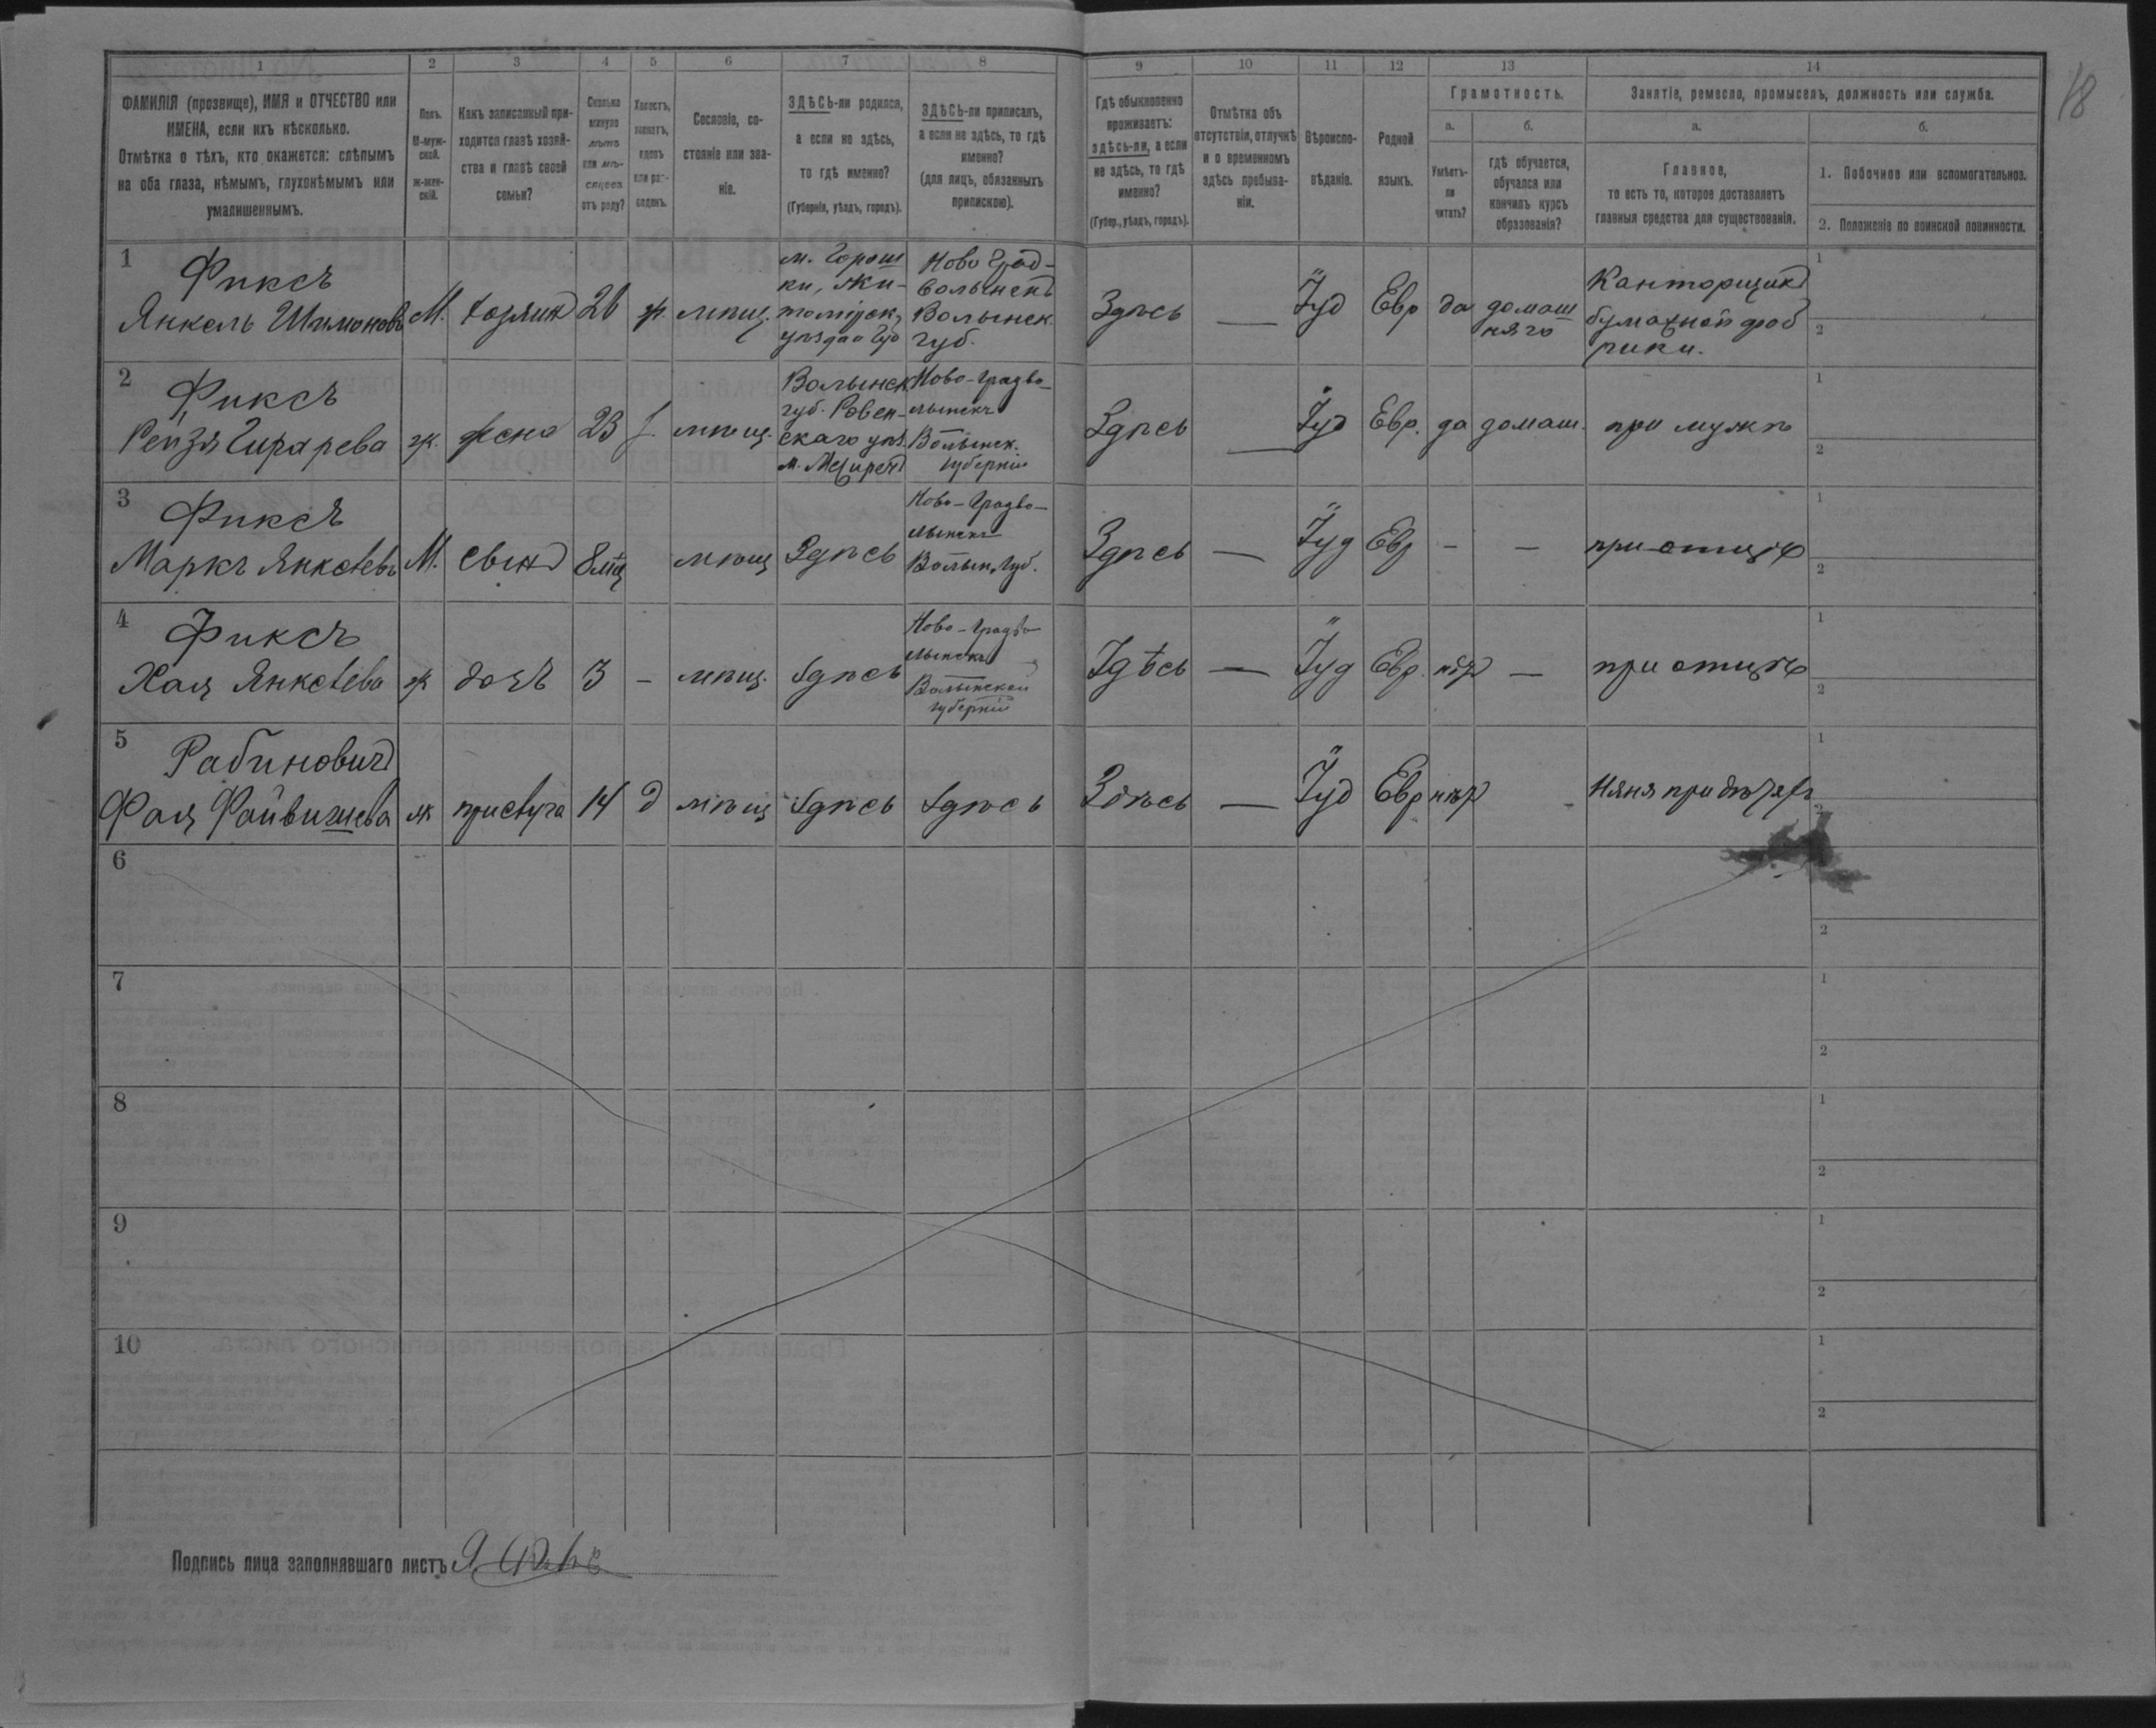 18
1 2 3 4 5 6 7 8 9 10 11 12 13 14
ФАМИЛІЯ (прозвище), ИМЯ и ОТЧЕСТВО или
ИМЕНА, если ихъ нѣсколько.
Отмѣтка о тѣхъ, кто окажется: слѣпымъ
на оба глаза, нѣмымъ, глухонѣмымъ или
умалишеннымъ.
Полъ.
М-муж-
ской.
ж-жен-
скій.
Какъ записанный при-
ходится главѣ хозяй-
ства и главѣ своей
семьи?
Сколько
минуло
лѣтъ
или мѣ-
сяцевъ
отъ роду?
Холостъ,
женатъ,
вдовъ
или раз-
веденъ.
Сословіе, со-
стояніе или зва-
ніе.
ЗДѢСЬ-ли родился,
а если не здѣсь,
то гдѣ именно?
(Губернія, уѣздъ, городъ).
ЗДѢСЬ-ли приписанъ,
а если не здѣсь, то гдѣ
именно?
(для лицъ, обязанныхъ
припискою).
Гдѣ обыкновенно
проживаетъ:
здѣсь-ли, а если
не здѣсь, то гдѣ
именно?
(Губер., уѣздъ, городъ).
Отмѣтка объ
отсутствіи, отлучкѣ
и о временномъ
здѣсь пребыва-
ніи.
Вѣроиспо-
вѣданіе.
Родной
языкъ.
Грамотность.
а.
Умѣетъ-
ли
читать?
б.
гдѣ обучается,
обучался или
кончилъ курсъ
образованія?
Занятіе, ремесло, промыселъ, должность или служба.
а.
Главное,
то есть то, которое доставляетъ
главныя средства для существованія.
б.
1. Побочное или вспомогательное.
2. Положеніе по воинской повинности.
1
Фиксъ
Янкель Шимоновъ
М.
хозяинъ
26
ж.
мѣщ.
м. Горош
ки, Жи-
томірск.
уѣзда
Ново Град-
волынскъ
Волынск.
губ.
Здѣсь
—
Іуд
Евр
да
домаш
няго
Канторщикъ
бумажной фаб
рики.
1
2
2
Фиксъ
Рейзя
ж.
жена
23
мѣщ.
Волынск
губ. Ровен-
скаго уѣз.
м. Межиречъ
Ново-Градво-
лынскъ
Волынск.
губерніи
Здѣсь
—
Іуд
Евр.
да
домаш.
при мужѣ
1
2
3
Фиксъ
Маркъ Янкелевъ
М.
сынъ
8 мѣс
мѣщ
Здѣсь
Ново-Градво-
лынскъ
Волын. губ.
Здѣсь
—
Іуд
Евр
—
—
при отцѣ
1
2
4
Фиксъ
Хая Янкелева
ж
дочь
3
—
мѣщ.
Здѣсь
Ново-Градво
лынскъ
Волынской
губерніи
Здѣсь
—
Іуд
Евр.
нѣтъ
—
при отцѣ
1
2
5
Рабиновичъ
Фая Файвишева
ж
прислуга
14
д
мѣщ
Здѣсь
Здѣсь
Здѣсь
—
Іуд
Евр
нѣтъ
-
Няня при дѣтяхъ
1
2
6
2
7
1
2
8
1
2
9
1
2
10
1
2
Подпись лица заполнявшаго листъ Я.